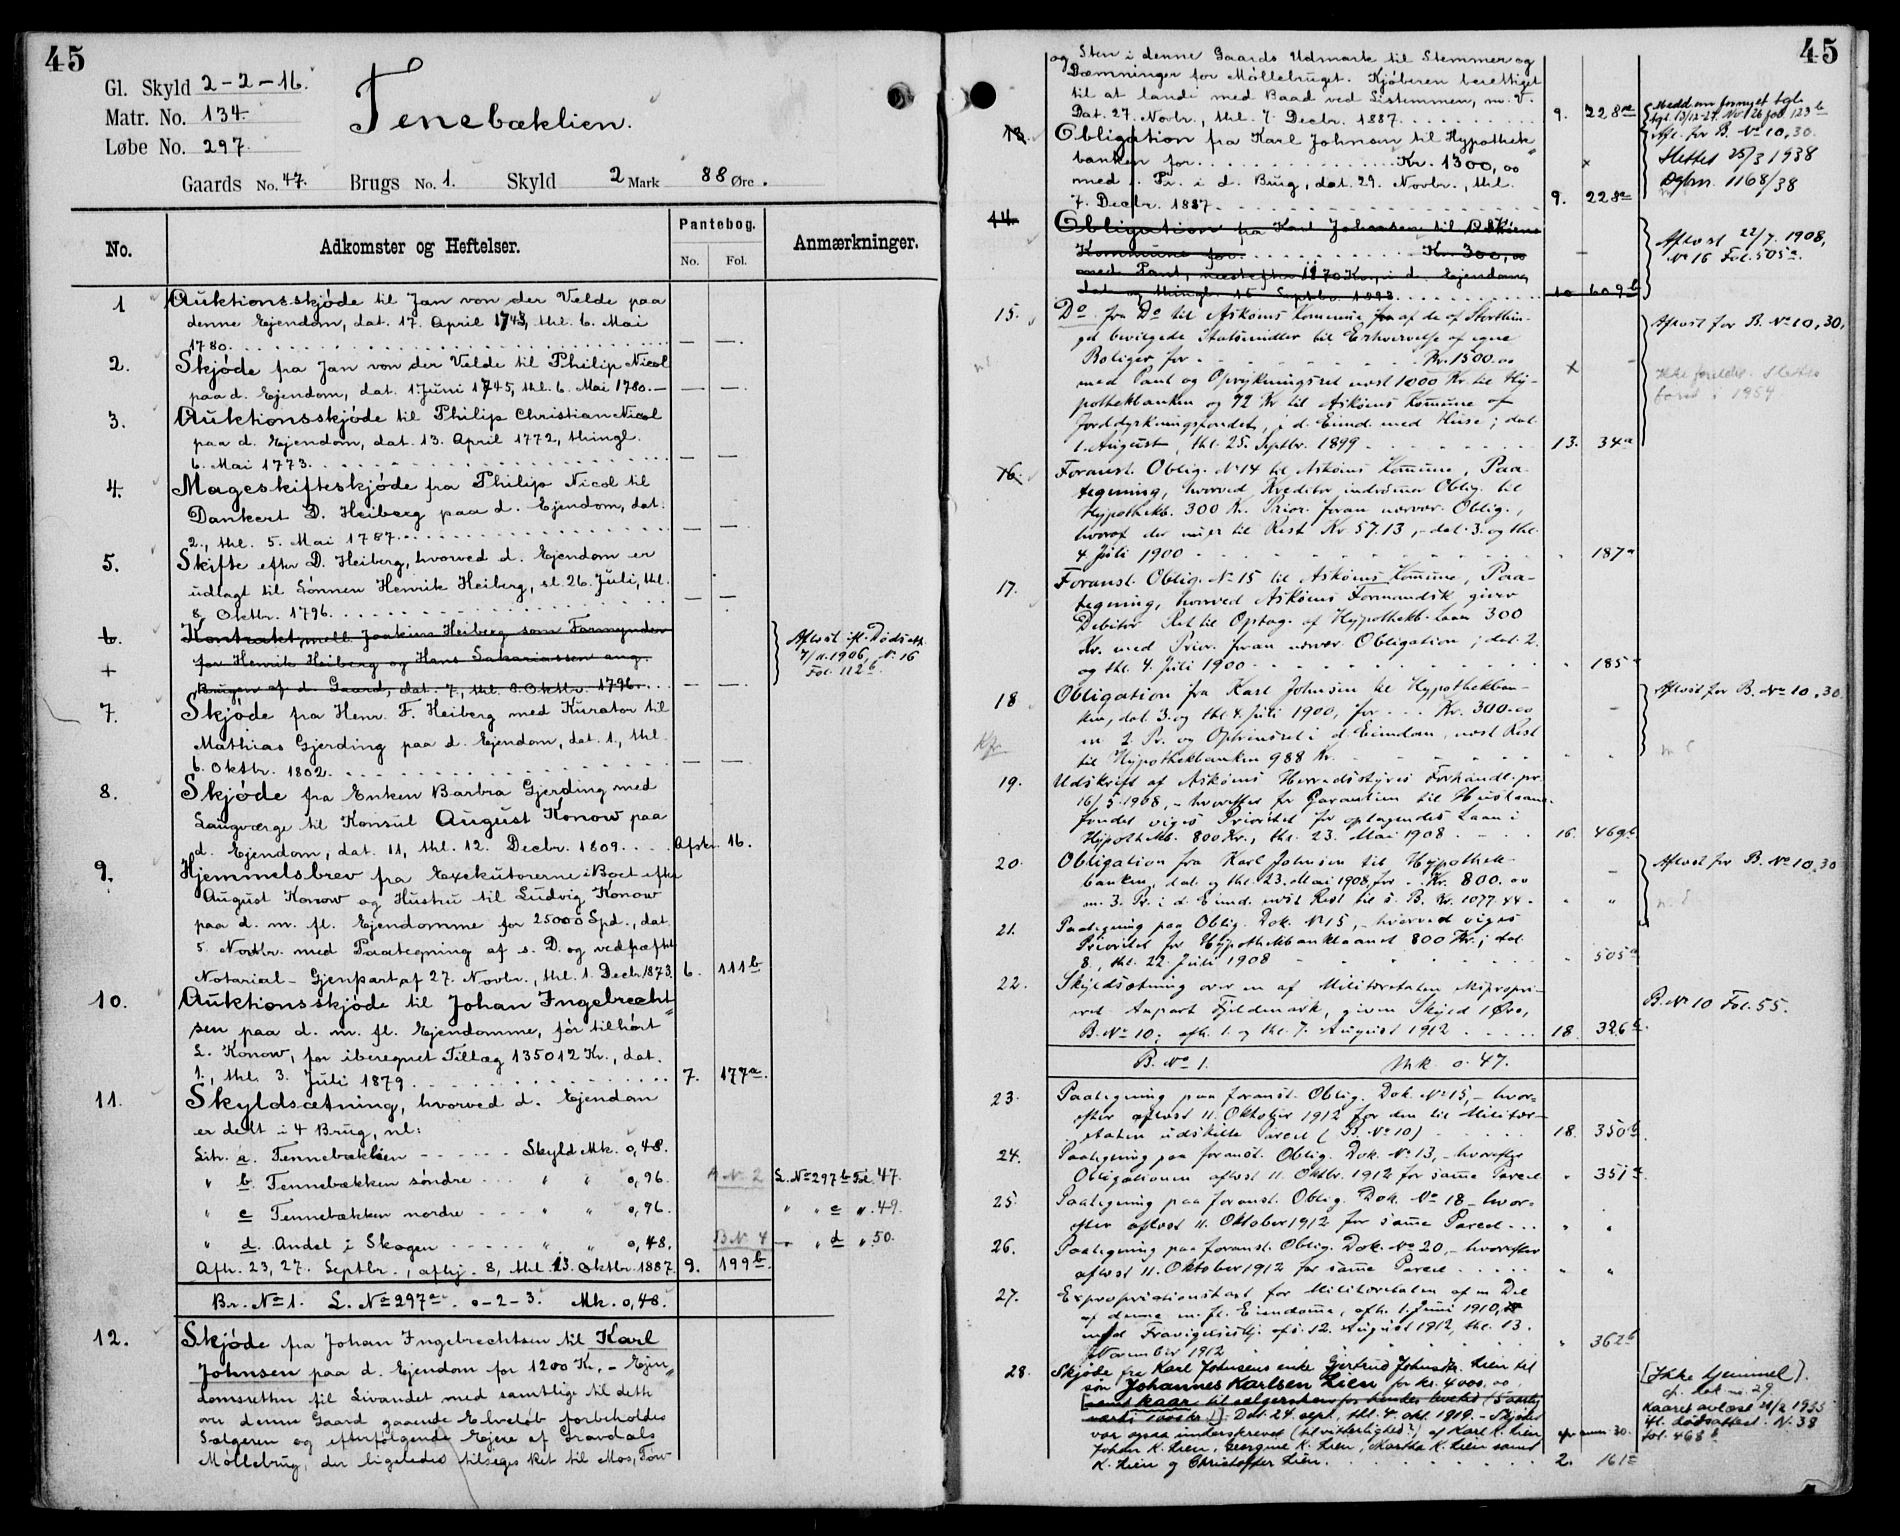 45
Gl. Skyld 2-2-16.
Matr. No. 134.
Løbe No. 297.
Tenebæklien.
Gaards No. 47. Brugs No. 1. Skyld 2 Mark 88 Øre.
No. Adkomster og Heftelser. Pantebog. No. Fol. Anmærkninger.
1 Auktionsskjøde til Jan von der Velde paa
denne Ejendom, dat. 17. April 1743, thl. 6. Mai
1780. — —
2. Skjøde fra Jan von der Velde til Philip Nicol
paa d. Ejendom, dat. 1 Juni 1745, thl. 6. Mai 1780. — —
3. Auktionsskjøde til Philip Christian Nicol
paa d. Ejendom, dat. 13. April 1772, thingl.
6. Mai 1773. — —
4. Mageskifteskjøde fra Philip Nicol til
Dankert D. Heiberg paa d. Ejendom, dat.
2., thl. 5. Mai 1787. — —
5. Skifte efter D. Heiberg, hvorved d. Ejendom er
udlagt til Sønnen Henrik Heiberg, sl. 26. Juli, thl.
8. Oktbr. 1796. — —
6. Kontrakt mell. Joakim Heiberg som Formynder
+ for Henrik Heiberg og Hans Sakariassen ang.
Brugen af d. Gaard, dat. 7., thl. 8. Oktbr. 1796. — —
Aflyst ifl. Dødsatt.
7/11.1906, N. 16
Fol. 112 b.
7. Skjøde fra Henr. F. Heiberg med Kurator til
Mathias Gjerding paa d. Ejendom, dat. 1., thl.
6. Oktbr. 1802. — —
8. Skjøde fra Enken Barbra Gjerding med
Laugværge til Konsul August Konow paa
d. Ejendom, dat. 11, thl. 12. Decbr. 1809. Afskr. 16.
9. Hjemmelsbrev fra Exekutorerne i Boet efter
August Konow og Hustru til Ludvig Konow
paa d. m. fl. Ejendomme for 25000 Spd., dat.
5. Novbr. med Paategning af s. D. og vedhæftet
Notarial-Gjenpart af 27. Novbr., thl. 1. Decbr. 1873. 6. 111 b
10. Auktionsskjøde til Johan Ingebrecht
sen paa d. m. fl. Ejendomme, før tilhørt
L. Konow, for iberegnet Tillæg 135012 Kr., dat.
1., thl. 3. Juli 1879 7. 177 a.
11. Skyldsætning, hvorved d. Ejendom
er delt i 4 Brug, nl:
Litr. a. Tennebæklien Skyld Mk. 0,48.
" b. Tennebækken søndre " " 0,96. A No 2 L. No 297 b Fol. 47.
" c Tennebækken nordre " " 0,96. " " c " 49.
" d. Andel i Skogen " " 0,48. B N. 4 " " d " 50.
Afh. 23, 27. Septbr., afhj. 8, thl. 13. Oktbr. 1887 9. 199 b.
Br. No 1. L. No 297 a. 0-2-3. Mk. 0,48.
12. Skjøde fra Johan Ingebrechtsen til Karl
Johnsen paa d. Ejendom for 1200 Kr. - Ejen
domsretten til Livandet med samtlige til dette
over denne Gaard gaaende Elveløb forbeholdes
Sælgeren og efterfølgende Ejere af Gravdals
Møllebrug, der ligeledes tilsiges Ret til Mos, Torv
45
og Sten i denne Gaards Udmark til Stemmer og
Dæmninger for Møllebruget. Kjøberen berettiget
til at lande med Baad ved Listemmen, m. V.
Dat. 27. Novbr., thl. 7. Decbr. 1887. 9. 228 a
13. Obligation fra Karl Johnsen til Hypothek
banken for Kr. 1300,00
med 1. Pr. i d. Brug, dat. 29. Novbr., thl.
7. Decbr. 1887. 9. 228 a
Medd om fornyet tgl.
tgl. 13/12-27. No 126 fol. 123 b
Afl. for B. No 10, 30.
Slettet 25/3 1938
Dgbnr. 1168/38
14. Obligation fra Karl Johnsen til Askøens
Kommune for Kr. 300,00
med Pant, næst efter 1170 Kr., i d. Ejendom,
dat. og thingl. 15 Septbr. 1893. 10 609 b
Aflyst 22/7. 1908,
No 16 Fol. 505 a.
15. Do fra Do til Askøens Komune af de af Storthin-
get bevilgede Statsmidler til Erhvervelse af egne
Boliger for Kr. 1500.00
med Pant og Oprykningsret næst 1000 Kr. til Hy-
pothekbanken og 72 Kr til Askøens Komune af
Jorddyrkningsfondet, i d. Eiend. med Huse; dat.
1. August, thl. 25. Septbr. 1899 13. 34 a
Aflyst for B. No 10, 30.
1954
16. Foranst. Oblig. No 14 til Askøens Komune, Paa-
tegning, hvorved Kreditor indrømer Oblig. til
Hypothekb. 300 Kr. Prior. foran nærvær. Oblig.,
hvoraf der nu er til Rest Kr 57.13, - dat. 3. og thl.
4. Juli 1900 " 187 a
17. Foranst. Oblig. No 15 til Askøens Komune, Paa-
tegning, hvorved Askøens Formandsk. giver
Debitor Ret til Optag. af Hypothekb. Laan 300
Kr. med Prior. foran nærvær. Obligation; dat. 2.
og thl. 4. Juli 1900 " 185
18 Obligation fra Karl Johnsen til Hypothekban-
ken, dat. 3. og thl. 4. Juli 1900, for Kr. 300.00
m 2. Pr. og Oprinsret i d. Eiendom, næst Rest
til Hypothekbanken 988 Kr. " "
Aflyst for B. No 10, 30
19. Udskrift af Askøens Herredsstyres Forhandl. pr.
16/5 1908, - hvorefter for Garantien til Huslaane-
fondet viges Prioritet for optagendes Laan i
Hypothekb. 800 Kr., thl. 23. Mai 1908 16. 469 b
20. Obligation fra Karl Johnsen til Hypothek-
banken, dat. og thl. 23. Mai 1908, for Kr. 800.00
m. 3. Pr. i d. Eiend. næst Rest til s. B. Kr. 1077.44 " "
Aflyst for B. No 10, 30
21. Paategning paa Oblig. Dok. No 15, - hvorved viges
Prioritet for Hypothekbanklaanet 800 Kr.; dat.
8., thl. 22. Juli 1908 " 505 a
22. Skyldsætning over en af Militæretaten expropri-
eret Anpart Fjeldmark, given Skyld 1 Øre,
B. No 10; afh. 1. og thl. 7. August 1912 18. 326
B. No 10 Fol. 55.
B. No 1. Mk 0.47.
23. Paategning paa foranst. Oblig. Dok. No 15, - hvor-
efter aflyst 11. Oktober 1912 for den til Militær-
etaten udskilte Parcel (B. No 10) 18. 350 b
24. Paategning paa foranst. Oblig. Dok. No 13, - hvorefter
Obligationen aflyst 11. Oktbr. 1912 for same Parcel " 351 a
25. Paategning paa foranst. Oblig. Dok. No 18 - hvor-
efter aflyst 11. Oktober 1912 for same Parcel " "
26. Paategning paa foranst. Oblig. Dok. No 20, - hvorefter
aflyst 11. Oktober 1912 for same Parcel " "
27. Expropriationstakst for Militæretaten af en Del
af denne m. fl. Eiendome, afh. 1. Juni 1910,
med Fravigelseskj. af s. 12. August 1912, thl. 13.
November 1912 " 362 b
28. Skjøde fra Karl Johnsens enke Gjertrud Johnsdtr. Lien til
søn Johannes Karlsen Lien for kr. 4000,00
samt kaar til sælgersken for hendes levetid (5 aarlig
værdi 1000 kr.) Dat. 24. sept., thl. 4. okt. 1919. - Skjøtet
var ogsaa underskrevet (til vitterlighed?) af Karl K. Lien,
Johan K. Lien, Georgine K. Lien, Martha K. Lien samt
K. Lien og Christoffer Lien. 2. 161 a
[Ikke hjemmel].
cfr. dok nr. 29
Kaaret avlæst 1955
ifl. dødsattest. N. 38
fol. 468 b